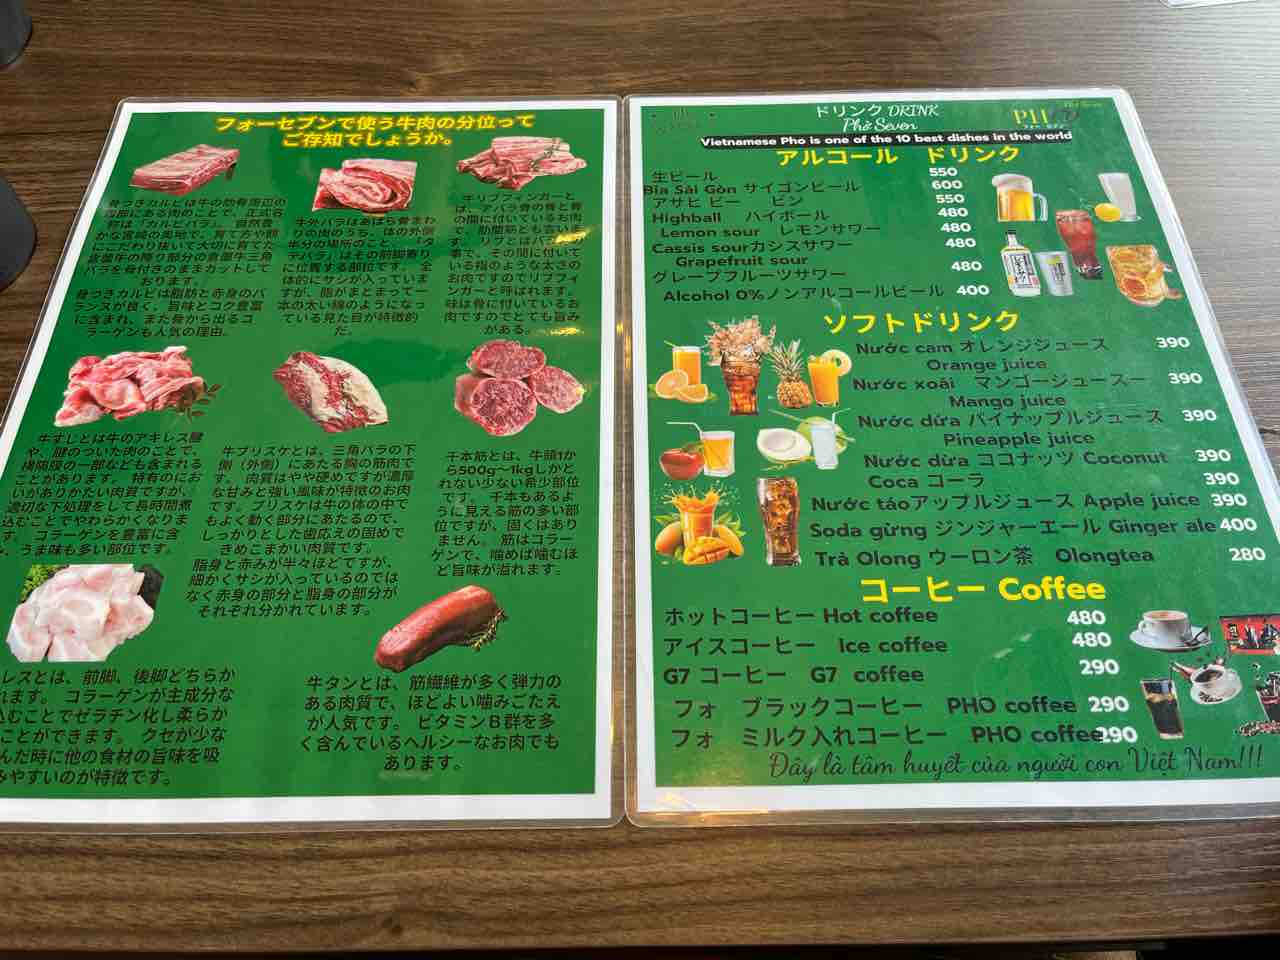 フォーセブンで使う牛肉の分位って
ご存知でしょうか。
骨つきカルビは牛の肋骨周辺の
にある肉のことで、正式名
称は「カルビバラ」。自然豊
かな宮崎の奥地で、育て方や餌
にこだわり抜いて大切に育てた
バラを骨付きのままカットして
おります。
骨つきカルビは脂肪と赤身のバ
ランスが良く、旨味とコク豊富
に含まれ、また骨から出るコ
ラーゲンも人気の理由。
牛外バラはあばら骨まわ
りの肉のうち、体の外側
半分の場所のこと、「タ
テバラ」はその前脚寄り
に位置する部位です。 全
体的にサシが入っていま
すが、脂がまとまって一
本の太い線のようになっ
ている見た目が特徴的
だ。
牛リブフィンガーと
は、アバラ骨の骨と骨
の間に付いているお肉
で、肋間筋とも言いま
す。 リブとはバラ
事で、その間に付いて
いる指のような太さの
お肉ですのでリブフィ
ンガーと呼ばれます。
味は骨に付いているお
肉ですのでとても旨み
がある。
牛すじとは牛のアキレス腱
や、腱のついた肉のことで、
横隔膜の一部なども含まれる
ことがあります。 特有のにお
いがありかたい肉質ですが、
適切な下処理をして長時間煮
込むことでやわらかくなりま
す。 コラーゲンを豊富に含
み、うま味も多い部位です。
牛ブリスケとは、三角バラの下
側（外側）にあたる胸の筋肉で
す。 肉質はやや硬めですが濃厚
な甘みと強い風味が特徴のお肉
です。ブリスケは牛の体の中で
もよく動く部分にあたるので、
しっかりとした歯応えの固めで
きめこまかい肉質です。
脂身と赤みが半々ほどですが、
細かくサシが入っているのでは
なく赤身の部分と脂身の部分が
それぞれ分かれています。
千本筋とは、牛頭1か
ら500g〜1kgしかと
れない少ない希少部位
です。 千本もあるよ
うに見える筋の多い部
位ですが、固くはあり
ません。 筋はコラー
ゲンで、噛めば噛むほ
ど旨味が溢れます。
レスとは、前脚、後脚どちらか
れます。 コラーゲンが主成分な
込むことでゼラチン化し柔らか
ことができます。 クセが少な
んだ時に他の食材の旨味を吸
みやすいのが特徴です。
牛タンとは、筋繊維が多く弾力の
ある肉質で、ほどよい噛みごたえ
が人気です。 ビタミンB群を多
く含んでいるヘルシーなお肉でも
あります。
ドリンク DRINK
Phở Seven
Vietnamese Pho is one of the 10 best dishes in the world
アルコール ドリンク
生ビール 550
Bia Sài Gòn サイゴンビール 600
アサヒ ビー ビン 550
Highball ハイボール 480
Lemon sour レモンサワー 480
Cassis sourカシスサワー 480
Grapefruit sour
グレープフルーツサワー 480
Alcohol 0%ノンアルコールビール 400
ソフトドリンク
Nước cam オレンジジュース 390
Orange juice
Nước xoài マンゴージュースー 390
Mango juice
Nước dứa パイナップルジュース 390
Pineapple juice
Nước dừa ココナッツ Coconut 390
Coca コーラ 390
Nước táoアップルジュース Apple juice 390
Soda gừng ジンジャーエール Ginger ale 400
Trà Olong ウーロン茶 Olongtea 280
コーヒー Coffee
ホットコーヒー Hot coffee 480
アイスコーヒー Ice coffee 480
G7 コーヒー G7 coffee 290
フォ ブラックコーヒー PHO coffee 290
フォ ミルク入れコーヒー PHO coffee 290
Đây là tâm huyết của người con Việt Nam!!!